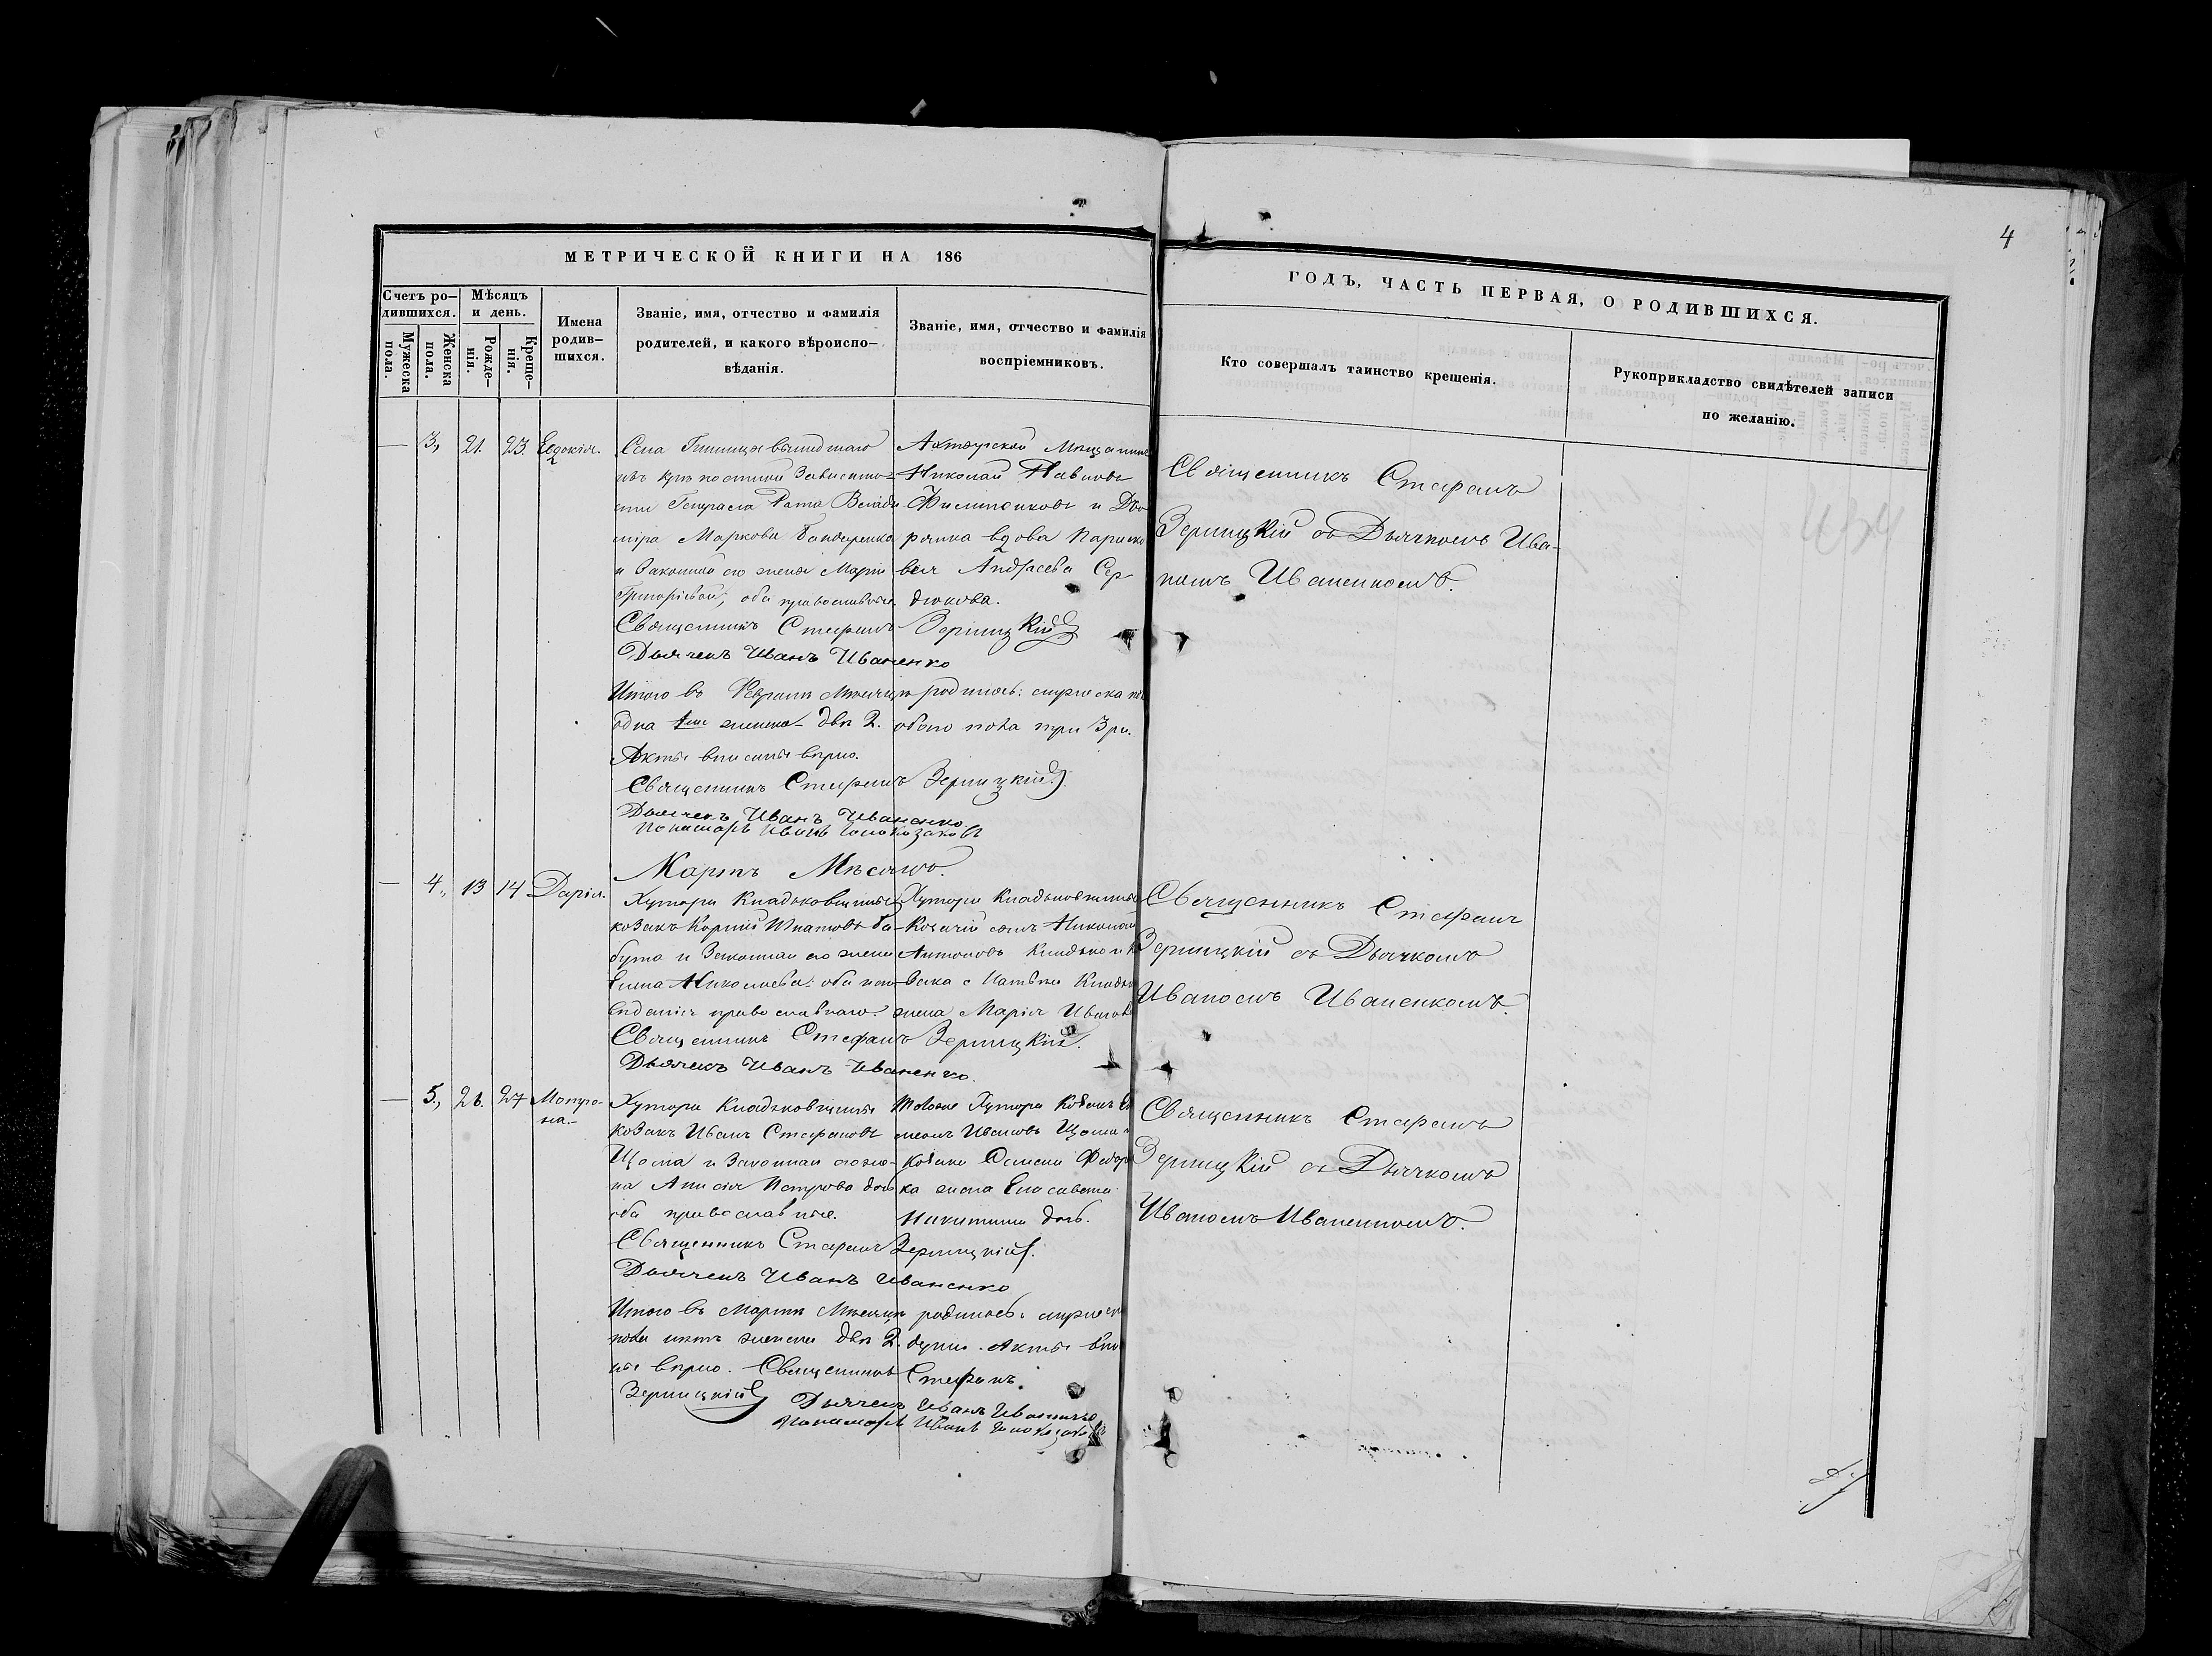 4
МЕТРИЧЕСКОЙ КНИГИ НА 186
ГОДЪ, ЧАСТЬ ПЕРВАЯ, О РОДИВШИХСЯ.
Счетъ ро-
дившихся.
Мужеска
пола.
Женска
пола.
Мѣсяцъ
и день.
Рожде-
нія.
Креще-
нія.
Имена
родив-
шихся.
Званіе, имя, отчество и фамилія
родителей, и какого вѣроиспо-
вѣданія.
Званіе, имя, отчество и фамилія
воспріемниковъ.
Кто совершалъ таинство крещенія.
Рукоприкладство свидѣтелей записи
по желанію.
— 3, 21. 23. Евдокія.
Села вышедшаго
изъ крѣпостной Зависимо-
сти Генерала Влади
мiра Маркова Бондаренка
и Законной его жены Маріи
Григорьевой, оба православные
Священникъ Стефанъ Зерницкій
Дьячекъ Иванъ Иваненко
Ахтырской Мѣщанинъ
Николай Павловъ
Филипенковъ и Дво
рянка вдова Параско
вея Андреева Сер
дюкова.
Священникъ Стефанъ
Зерницкій съ Дьячкомъ Ива-
номъ Иваненкомъ.
Итого въ Февралѣ Мѣсяцѣ родилось: мужеска
одна женска двѣ 2. обоего пола три 3 ри.
Акты вписаны вѣрно.
Священникъ Стефанъ Зерницкій
Дьячекъ Иванъ Иваненко
Понамарь Иванъ
Мартъ Мѣсяцъ.
— 4, 13 14 Дарія.
Хутора
козакъ Корній Игнатовъ Ба-
бута и Законная его жена
Елена Николаева: оба испо-
вѣданія православнаго.
Священникъ Стефанъ Зерницкій.
Дьячекъ Иванъ Иваненко.
Хутора
Козачій сынъ Николай
Антоновъ
жена Марія Иванова
Священникъ Стефанъ
Зерницкій съ Дьячкомъ
Иваномъ Иваненкомъ.
— 5, 26. 27 Мотро-
на.-
Хутора
козакъ Иванъ Стефановъ
и Законная его же-
на Анисія Петрова дочь
оба православные.
Священникъ Стефанъ Зерницкій.
Дьячекъ Иванъ Иваненко
Хутора Козакъ
Ивановъ
козака Семена Федор
ка жена Елисавета
Никитина дочь.
Священникъ Стефанъ
Зерницкій съ Дьячкомъ
Иваномъ Иваненкомъ.
Итого въ Мартѣ Мѣсяцѣ родилось: мужеск
пола нѣтъ женска двѣ 2. души. Акты впи
ны вѣрно. Священникъ Стефанъ
Зерницкій
Дьячекъ Иванъ Иваненко
Понамарь Иванъ